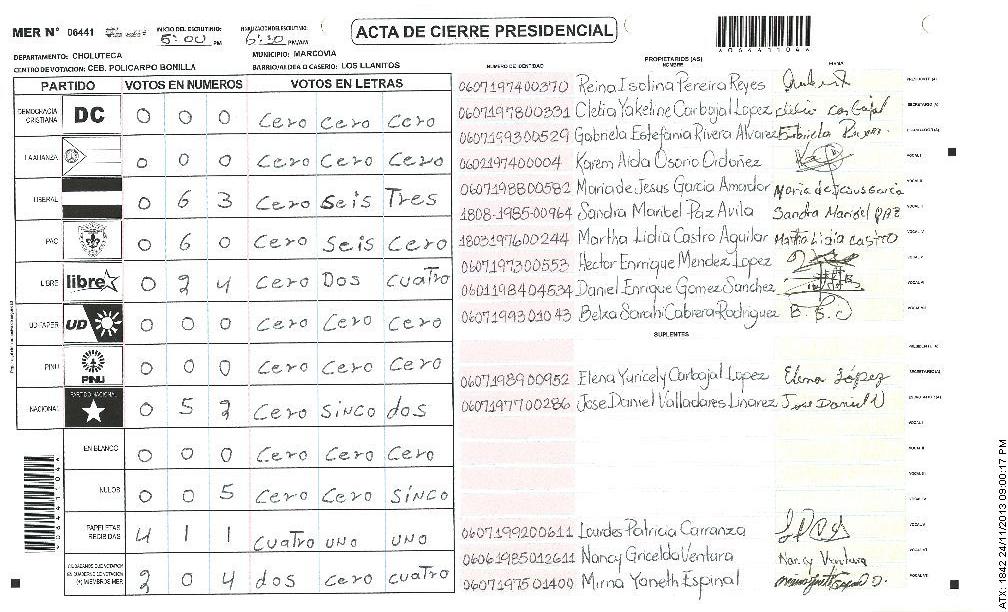 MER N° 06441 INICIO DEL ESCRUTINIO: 5:00 PM FINALIZACION DEL ESCRUTINIO: 6:30 PM/AM
ACTA DE CIERRE PRESIDENCIAL
DEPARTAMENTO: CHOLUTECA MUNICIPIO: MARCOVIA
CENTRO DE VOTACION: CEB. POLICARPO BONILLA BARRIO/ALDEA O CASERIO: LOS LLANITOS
PARTIDO VOTOS EN NUMEROS VOTOS EN LETRAS
DEMOCRACIA CRISTIANA DC 0 0 0 Cero Cero Cero
LA ALIANZA 0 0 0 Cero Cero Cero
LIBERAL 0 6 3 Cero Seis Tres
PAC 0 6 0 Cero Seis Cero
LIBRE libre 0 2 4 Cero Dos Cuatro
UD-FAPER UD 0 0 0 Cero Cero Cero
PINU PINU 0 0 0 Cero Cero Cero
NACIONAL PARTIDO NACIONAL 0 5 2 Cero SiNCO dos
EN BLANCO 0 0 0 Cero Cero Cero
NULOS 0 0 5 Cero Cero SiNCO
PAPELETAS RECIBIDAS 4 1 1 Cuatro UNO UNO
CIUDADANOS QUE VOTARON EN CUADERNO DE VOTACION (+) MIEMBROS MER 2 0 4 dos Cero Cuatro
PROPIETARIOS (AS)
NUMERO DE IDENTIDAD NOMBRE FIRMA
0607197400370 Reina Isolina Pereira Reyes PRESIDENTE (A)
0607197800331 Cletia Yakeline Carbajal Lopez SECRETARIO (A)
0607199300529 Gabriela Estefania Rivera Alvarez ESCRUTADOR (A)
0602197400004 Karem Aida Osorio Ordoñez VOCAL I
0607198800582 Maria de Jesus Garcia Amador Maria de Jesus Garcia VOCAL II
1808-1985-00964 Sandra Maribel Paz Avila Sandra Maribel PAZ
1803197600244 Martha Lidia Castro Aguilar Martha Lidia Castro
0607197300553 Hector Enrrique Mendez Lopez
0601198404534 Daniel Enrique Gomez Sanchez
0607199301043 Belxa Sarahi Cabrera Rodriguez B. S. C
SUPLENTES
PRESIDENTE (A)
0607198900952 Elena Yuricely Carbajal Lopez Elena López SECRETARIO (A)
0607197700286 Jose Daniel Valladares Linarez Jose Daniel V ESCRUTADOR (A)
0607199200611 Lourdes Patricia Carranza
0606198501261​1 Nancy Gricelda Ventura Nancy Ventura
0607197501409 Mirna Yaneth Espinal
ATX: 1842 24/11/2013 09:00:17 PM